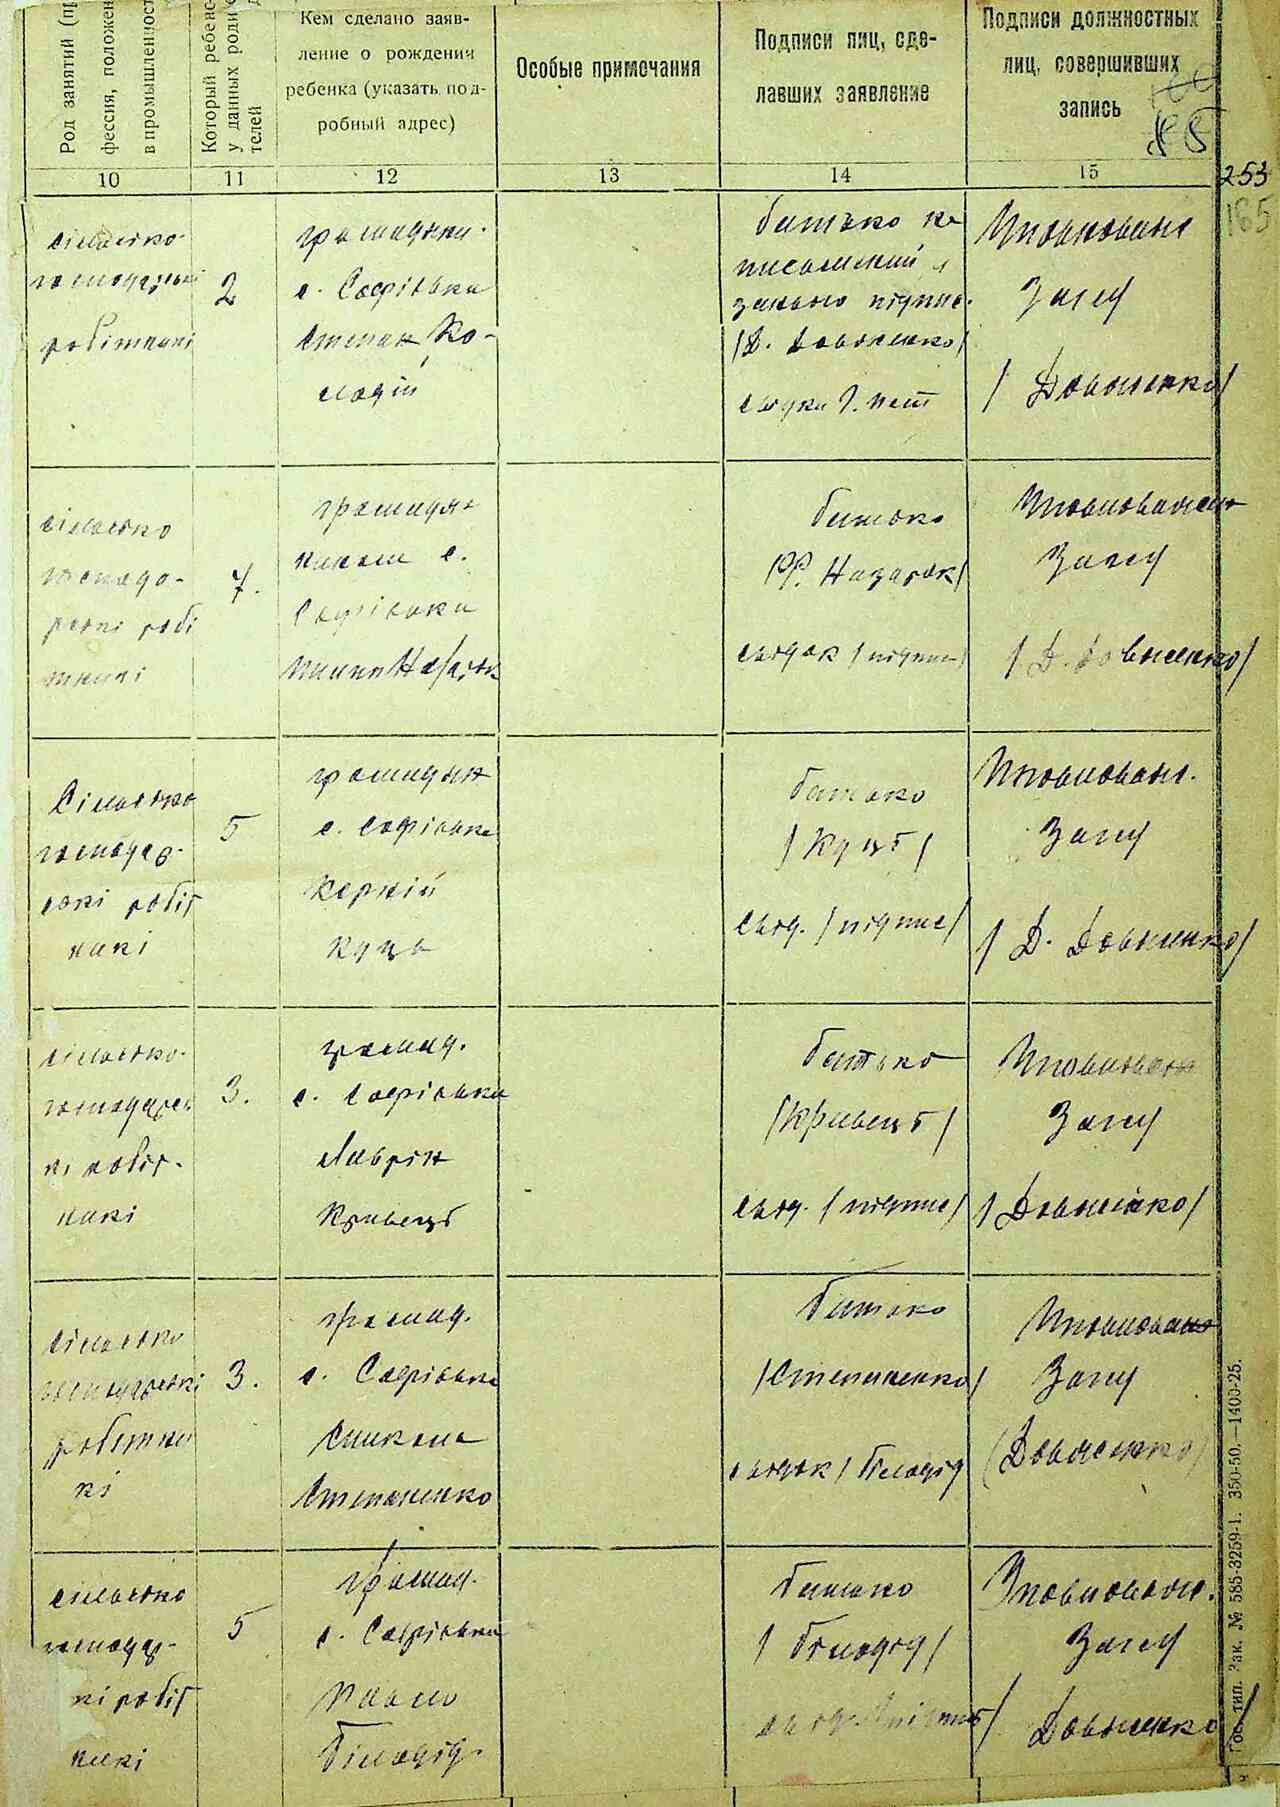 Род занятий (пр
фессия, положен
в промышленност
Который ребенок
у данных роди-
телей
Кем сделано заяв-
ление о рождении
ребенка (указать под-
робный адрес)
Особые примечания
Подписи лиц, сде-
лавших заявление
Подписи должностных
лиц, совершивших
запись
85
10
11
12
13
14
15
253
165
сільсько-
господарські
робітники
2
громадян.
с. Софіївки
Степан Ко-
лодій
батько не
письменний
за нього підпис.
/Д. Довженко/
свідки
Уповноваж
Загсу
/ Довженко/
сільсько
господа-
рські робі
тники
7.
громадян
с.
Софіївки
Назарок
батько
/Р. Назарок/
свідок /підпис/
Уповноважен
Загсу
/ Д. Довженко/
Сільсько
господар-
ські робіт
ники
5
громадян
с. Софіївки
Корній
Куць
батько
/Куць/
свід. /підпис/
Уповноваж.
Загсу
/ Д. Довженко/
сільсько-
господарсь
кі робіт-
ники
3.
громад.
с. Софіївки
Лаврін
Кривець
батько
/Кривець/
свід. /підпис/
Уповноваж
Загсу
/Довженко/
сільсько
господарські
робітни
кі
3.
громад.
с. Софіївки
Степаненко
батько
/Степаненко/
свідок / Білодід
Уповноваж
Загсу
(Довженко)
сільсько
господар-
кі робіт
ники
5
громад.
с. Софіївки
Павло
Білодід.
батько
/ Білодід/
свід. /підпис/
Уповноваж.
Загсу
/ Довженко/
Гос. тип. Зак. № 585-3259-1. 350-50.—1400-25.